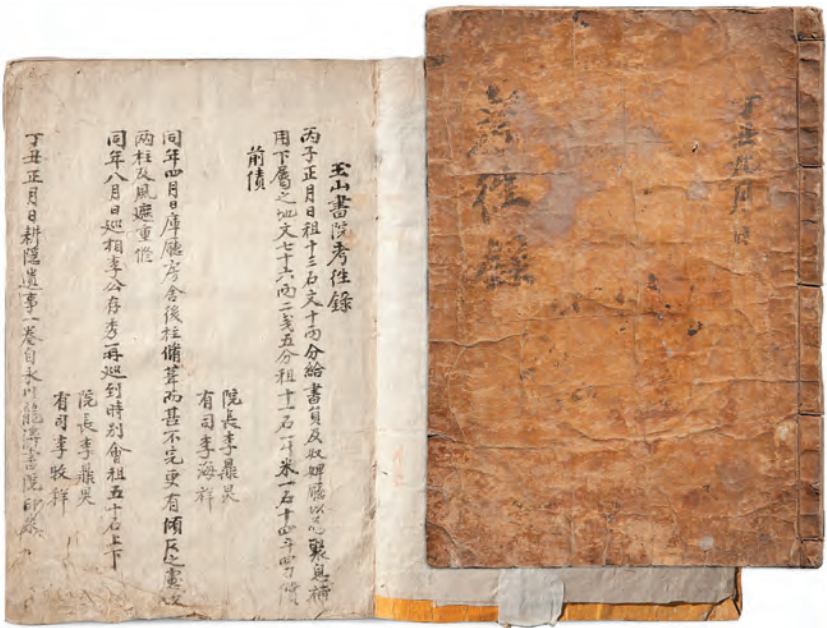 丁丑九月日
考往錄
玉山書院考往錄
丙子正月日租十三石文十兩分給書員及奴婢廳以爲聚息補
用下屬之地文七十六兩二戔五分租十一石一斗米一石十四斗四 償
前債
院長李鼎
有司李海祥
同年四月日庫廳房舍後柱備葺而甚不完更有傾仄之患改
兩柱及風遮重修
同年八月日巡相李公存秀再巡到時別會租五十石上下
院長李鼎
有司李牧祥
丁丑正月日耕隱遺事一卷自永川龍溪書院印來